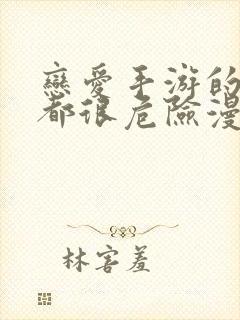 戀愛手游的
都很危險漫
林害羞